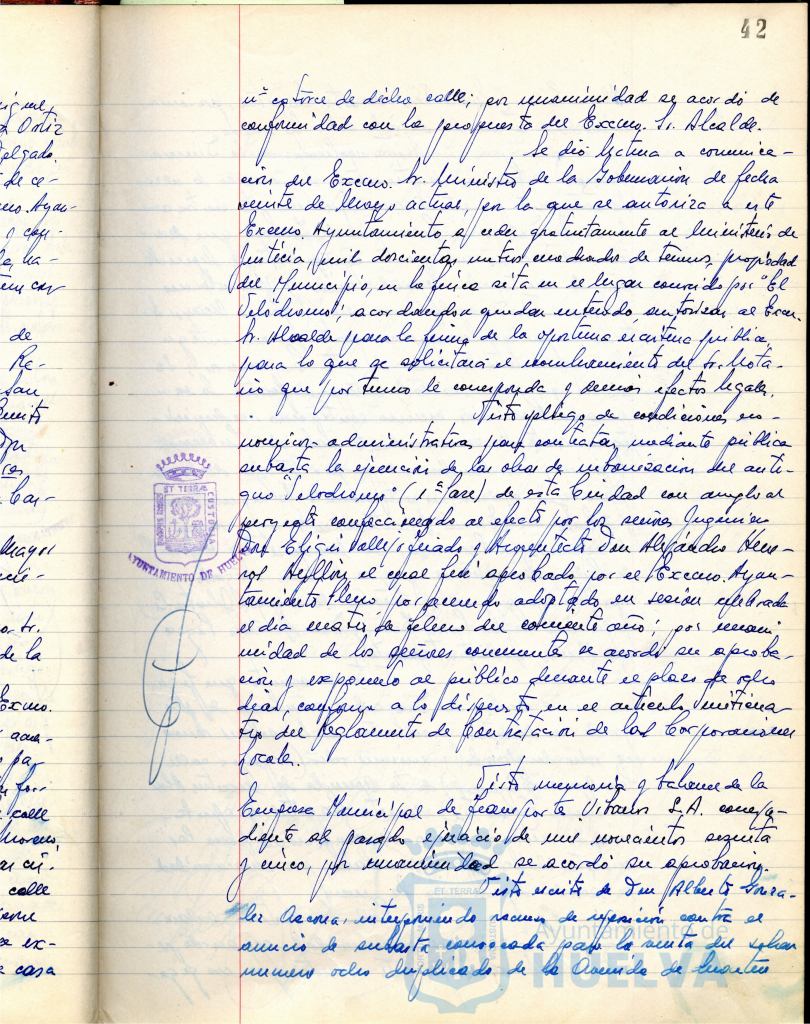 42
nº catorce de dicha calle; por unanimidad se acordó de
conformidad con la propuesta del Excmo. Sr. Alcalde.
Se dió lectura a comunica-
ción del Excmo. Sr. Ministro de la Gobernación de fecha
veinte de Mayo actual, por la que se autoriza a este
Excmo. Ayuntamiento a ceder gratuitamente al Ministerio de
Justicia, mil doscientos metros cuadrados de terreno, propiedad
del Municipio, en la finca sita en el lugar conocido por "El
Velódromo", acordándose quedar enterado, autorizar al Excmo.
Sr. Alcalde para la firma de la oportuna escritura pública,
para lo que se solicitará el nombramiento del Sr. Nota-
rio que por turno le corresponda y demás efectos legales.
Visto pliego de condiciones eco-
nómico-administrativas para contratar mediante pública
subasta la ejecución de las obras de urbanización del anti-
guo "Velódromo" (1ª fase) de esta Ciudad con arreglo al
proyecto confeccionado al efecto por los señores Ingeniero
Don y Arquitecto Don Alejandro Herre-
ros el cual fué aprobado por el Excmo. Ayun-
tamiento Pleno, por acuerdo adoptado en sesión celebrada
el día de del corriente año; por unani
midad de los señores concurrentes se acordó su aproba-
ción y exponerlo al público durante el plazo de ocho
días, conforme a lo dispuesto en el artículo veinticua-
tro del Reglamento de Contratación de las Corporaciones
Locales.
Visto memoria y balance de la
Empresa Municipal de Transportes Urbanos S.A. correspon-
diente al pasado ejercicio de mil novecientos sesenta
y cinco, por unanimidad se acordó su aprobación.
Visto escrito de Don Alberto Gonzá-
lez interponiendo recurso de reposición contra el
anuncio de subasta convocada para la venta del solar
número ocho duplicado de la Avenida de
ET TERRAE
AYUNTAMIENTO DE HUELVA
Ayuntamiento de
HUELVA